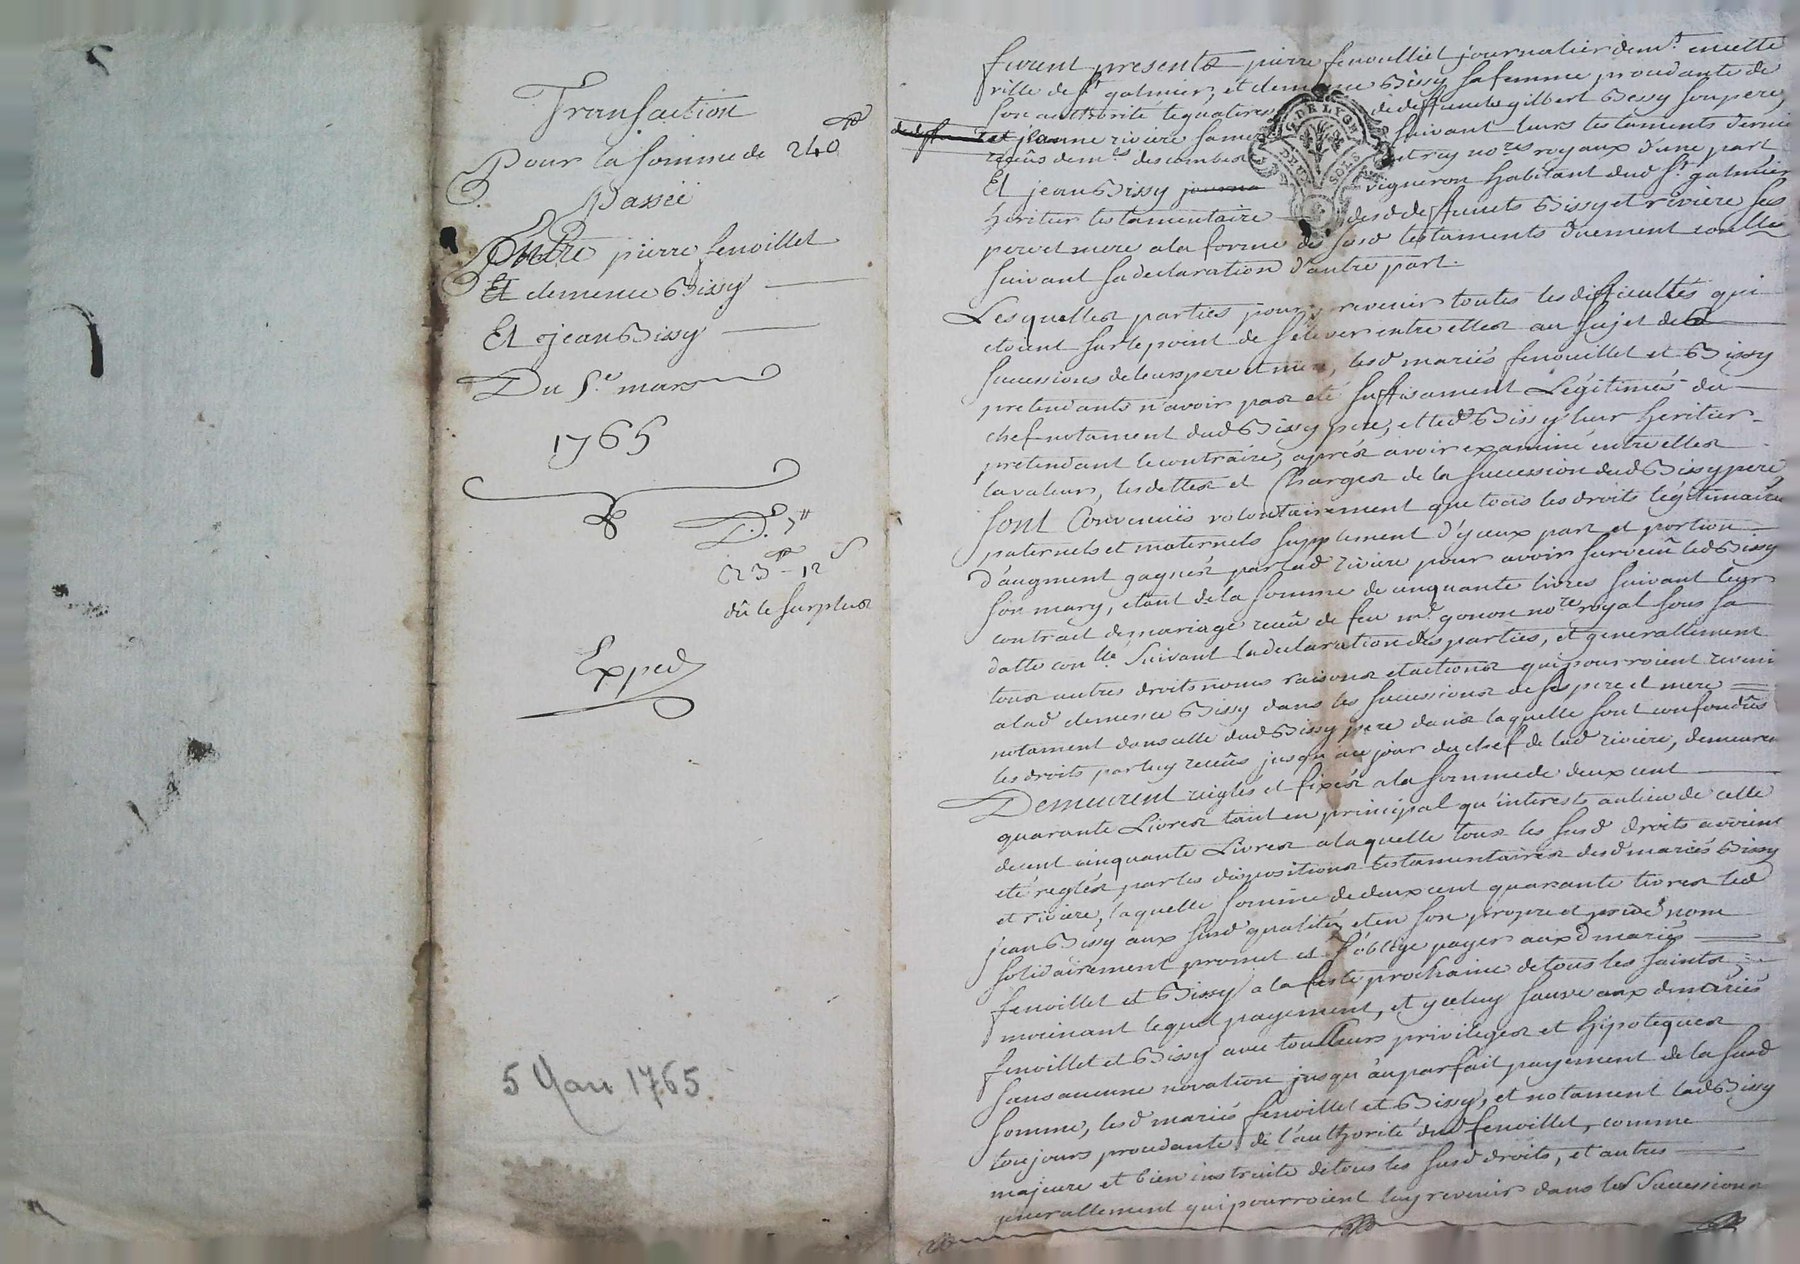 Transaction
Pour la somme de 240 ₶
Passeé
Entre pierre fenoillet
Et clemence Bissy
Et jean Bissy
Du 5.e mars
1765
D. 7 ₶
C 23 ₶ 12 s
dû le surplus
Exped
5 Mars 1765.
furent presents pierre fenoulliet journalier dem.t en cette
ville de st galmier, et clemence Bissy sa femme procedante de
son authorité legataires de deffuncts gilbert Bessy son pere,
et jeanne riviere sa mere suivant leurs testaments dernier
recûs de me.s descombes et rey no.res royaux d'une part
Et jean Bissy journa vigneron habitant dud st galmier
heritier testamentaire desd deffuncts Bissy et riviere ses
pere et mere a la forme de susd testaments duement
suivant sa declaration d'autre part.
Lesquelles parties pour prevenir toutes les difficultés qui
etoient sur le point de s'élever entre elles au sujet des
successions de leurs pere et mere, lesd mariés fenouillet et Bissy
pretendants n'avoir pas eté suffisament Légitimés du
chef notament dud Bissy pere, et led Bissy leur heritier
pretendant le contraire, aprés avoir examiné entre elles
la valeur, les dettes et Charges de la succession dud Bissy pere
sont Convenües volontairement que tous les droits légitimaires
paternels et maternels supplement d'yceux part et portion
d'augment gagnés par lad riviere pour avoir surveçu led Bissy
son mary, etant de la somme de cinquante livres suivant leur
contrait de mariage recû de feu me gonon no.re royal sous sa
datte con.llé suivant la declaration des parties, et generallement
tous autres droits noms raisons et actions qui pourroient revenir
a lad clemence Bissy dans les successions de ses pere et mere
notament dans celle dud Bissy pere dans laquelle sont confondûs
les droits par luy recûs jusqu'au jour du chef de lad riviere, demeurent
Demeurent reiglés et fixés a la somme de deux cent
quarante Livres tant en principal qu'interests au lieu de celle
de cent cinquante Livres a laquelle tous les susd droits avoient
eté reglés par les dispositions testamentaires desd mariés Bissy
et riviere, laquelle somme de deux cent quarante livres led
jean Bissy aux susd qualités et en son propre et privé nom
solidairement promet et s'oblige payer auxd mariés
fenoillet et Bissy a la feste prochaine de tous les saints,
moienant lequel payement, et yceluy sauve aux d mariés
fenoillet et Bissy avec tous leurs privileges et hipoteques
sans aucune novation jusqu'au parfait payement de la susd
somme, lesd mariés fenoillet et Bissy, et notament lad Bissy
toujours procedante de l'authorité dud fenoillet, comme
majeure et bien instruite de tous les susd droits, et autres
generallement qui pourroient luy revenir dans les Successions